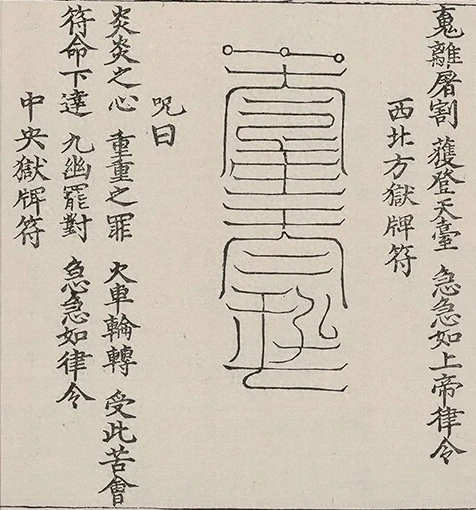 䰟離屠割 獲登天臺 急急如上帝律令
西北方獄牌符
呪曰
炎炎之心 重重之罪 火車輪轉 受此苦會
符命下達 九幽罷對 急急如律令
中央獄牌符